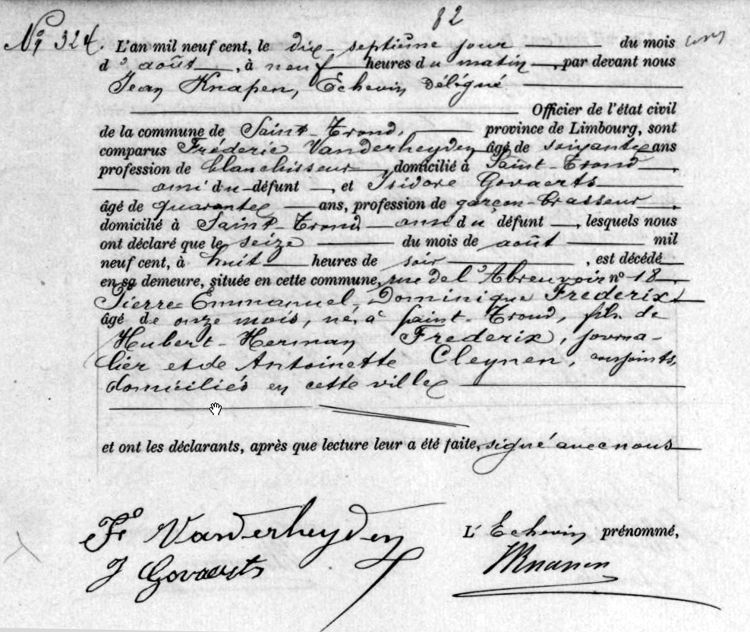 82
N° 324. L'an mil neuf cent, le dix-septième jour du mois
d'août, à neuf heures du matin, par devant nous
Jean Knapen, Echevin délégué
Officier de l'état civil
de la commune de Saint-Trond, province de Limbourg, sont
comparus Fréderic Vanderheyden âgé de soixante ans
profession de blanchisseur, domicilié à Saint-Trond,
ami du défunt, et Isidore Govaerts
âgé de quarante ans, profession de garçon-brasseur,
domicilié à Saint-Trond ami du défunt, lesquels nous
ont déclaré que le seize du mois de août mil
neuf cent, à huit heures de soir, est décédé
en sa demeure, située en cette commune, rue de l'Abreuvoir n° 18,
Pierre Emmanuel, Dominique Frederix,
âgé de onze mois, né à Saint-Trond, fils de
Hubert-Herman Frederix, journa-
lier et de Antoinette Cleynen, conjoints,
domiciliés en cette ville
et ont les déclarants, après que lecture leur a été faite, signé avec nous
Fç Vanderheyden
L'Echevin prénommé,
J Govaerts
JKnapen